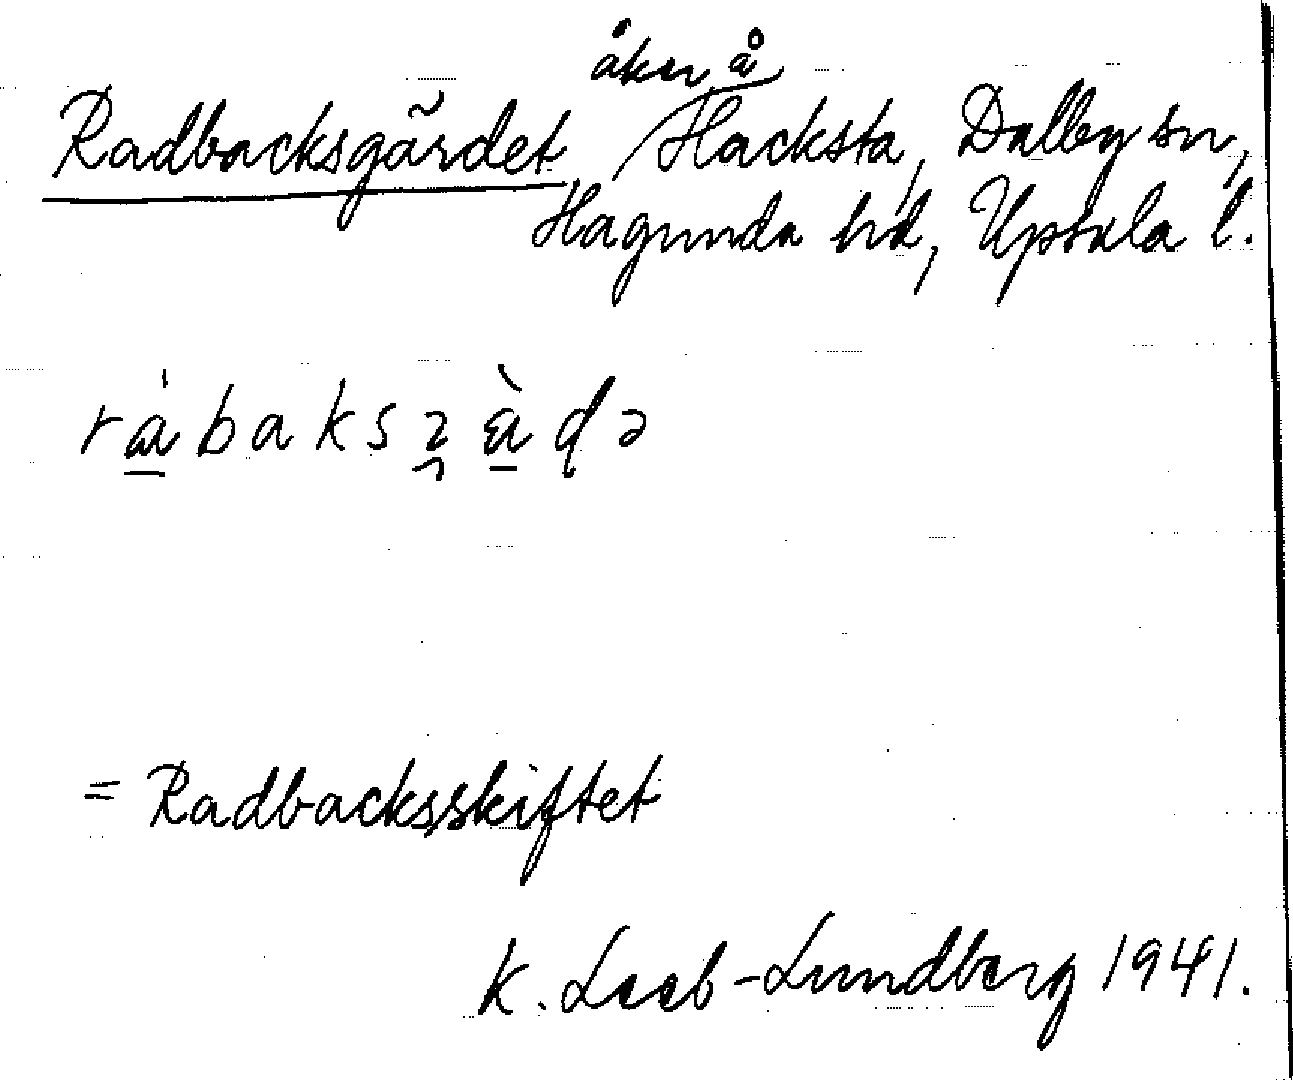 åker å
Radbacksgärdet, Hacksta, Dalby sn,
Hagunda hd, Upsala l.
= Radbacksskiftet
K. Leeb-Lundberg 1941.